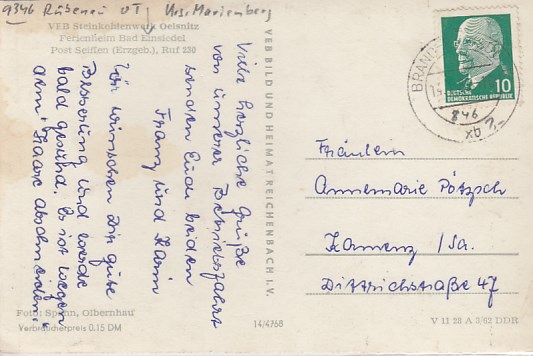 9346 Rübenau OT, Krs. Marienberg
VEB Steinkohlenwerk Oelsnitz
Ferienheim Bad Einsiedel
Post Seiffen (Erzgeb.), Ruf 230
Viele herzliche Grüße
von unserer Betriebsfahrt
senden Euch beiden
Franz und Karin
Wir wünschen Dir gute
Besserung und werde
bald gesund. Es ist wegen
dem
Foto: Spann, Olbernhau
Verbraucherpreis 0.15 DM
VEB BILD UND HEIMAT REICHENBACH I. V.
14/4768
BRAND
DEUTSCHE
DEMOKRATISCHE REPUBLIK
10
Fräulein
Annemarie Pötzsch
Kamenz /Sa.
Dittrichstraße 47
V 11 28 A 3/62 DDR